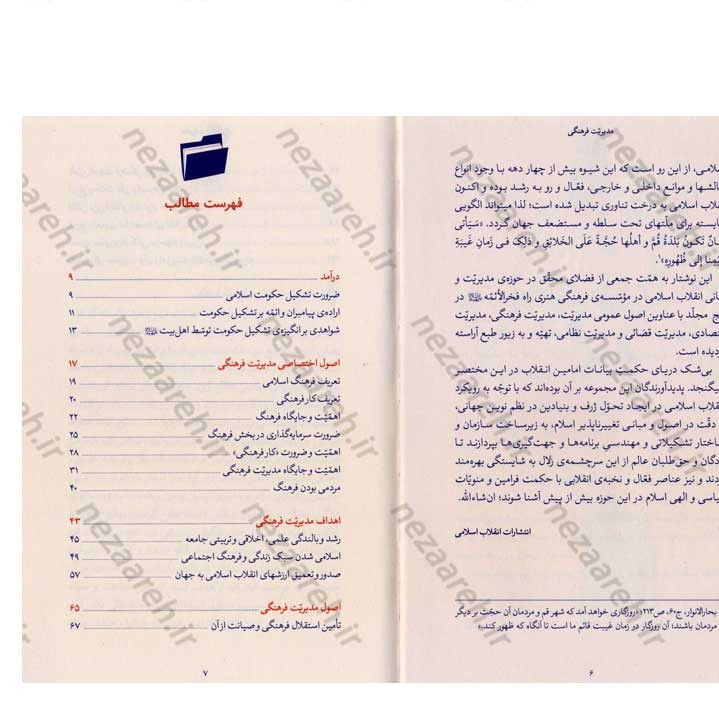 مدیریّت فرهنگی
سلامی، از این رو است که این شیوه بیش از چهار دهه با وجود انواع
الشها و موانع داخلی و خارجی، فعّال و رو به رشد بوده و اکنون
قلاب اسلامی به درخت تناوری تبدیل شده است؛ لذا میتواند الگویی
ایسته برای ملّتهای تحت سلطه و مستضعف جهان گردد. «سَیَأتی
مانٌ تَکونُ بَلدَةُ قُمَّ و أهلُها حُجَّةً عَلَی الخَلائِقِ و ذٰلِکَ فی زَمانِ غَیبَةِ
ئِمِنا إلی ظُهُورِه»۱.
این نوشتار به همّت جمعی از فضلای محقّق در حوزه‌ی مدیریّت و
انی انقلاب اسلامی در مؤسّسه‌ی فرهنگی هنری راه فخرالأئمّه در
ج مجلّد با عناوین اصول عمومی مدیریّت، مدیریّت فرهنگی، مدیریّت
تصادی، مدیریّت قضائی و مدیریّت نظامی، تهیّه و به زیور طبع آراسته
ردیده است.
بی‌شک دریای حکمتِ بیانات امامین انقلاب در این مختصر
یگنجد. پدیدآورندگان این مجموعه بر آن بوده‌اند که با توجّه به رویکرد
قلاب اسلامی در ایجاد تحوّل ژرف و بنیادین در نظم نوین جهانی،
دقّت در اصول و مبانی تغییرناپذیر اسلام، به زیرساخت سازمان و
اختار تشکیلاتی و مهندسی برنامه‌ها و جهت‌گیری‌ها بپردازند تا
دگان و حق‌طلبان عالم از این سرچشمه‌ی زلال به شایستگی بهره‌مند
ردند و نیز عناصر فعّال و نخبه‌ی انقلابی با حکمت فرامین و منویّات
یاسی و الهی اسلام در این حوزه بیش از پیش آشنا شوند؛ ان‌شاءالله.
انتشارات انقلاب اسلامی
بحارالانوار، ج۶۰، ص۲۱۳؛ «روزگاری خواهد آمد که شهر قم و مردمان آن حجّت بر دیگر
مردمان باشند؛ آن روزگار در زمان غیبت قائم ما است تا آنگاه که ظهور کند.»
۶
فهرست مطالب
درآمد ۹
ضرورت تشکیل حکومت اسلامی ۹
اراده‌ی پیامبران و ائمّه بر تشکیل حکومت ۱۱
شواهدی بر انگیزه‌ی تشکیل حکومت توسّط اهل‌بیت ۱۳
اصول اختصاصی مدیریّت فرهنگی ۱۷
تعریف فرهنگ اسلامی ۱۹
تعریف کار فرهنگی ۲۰
اهمّیّت و جایگاه فرهنگ ۲۲
ضرورت سرمایه‌گذاری در بخش فرهنگ ۲۵
اهمّیّت و ضرورت «کار فرهنگی» ۲۸
اهمّیّت و جایگاه مدیریّت فرهنگی ۳۱
مردمی بودن فرهنگ ۴۰
اهداف مدیریّت فرهنگی ۴۳
رشد و بالندگی علمی، اخلاقی و تربیتی جامعه ۴۵
اسلامی شدن سبک زندگی و فرهنگ اجتماعی ۴۹
صدور و تعمیق ارزشهای انقلاب اسلامی به جهان ۵۷
اصول مدیریّت فرهنگی ۶۵
تأمین استقلال فرهنگی و صیانت از آن ۶۷
۷
nezaareh.ir